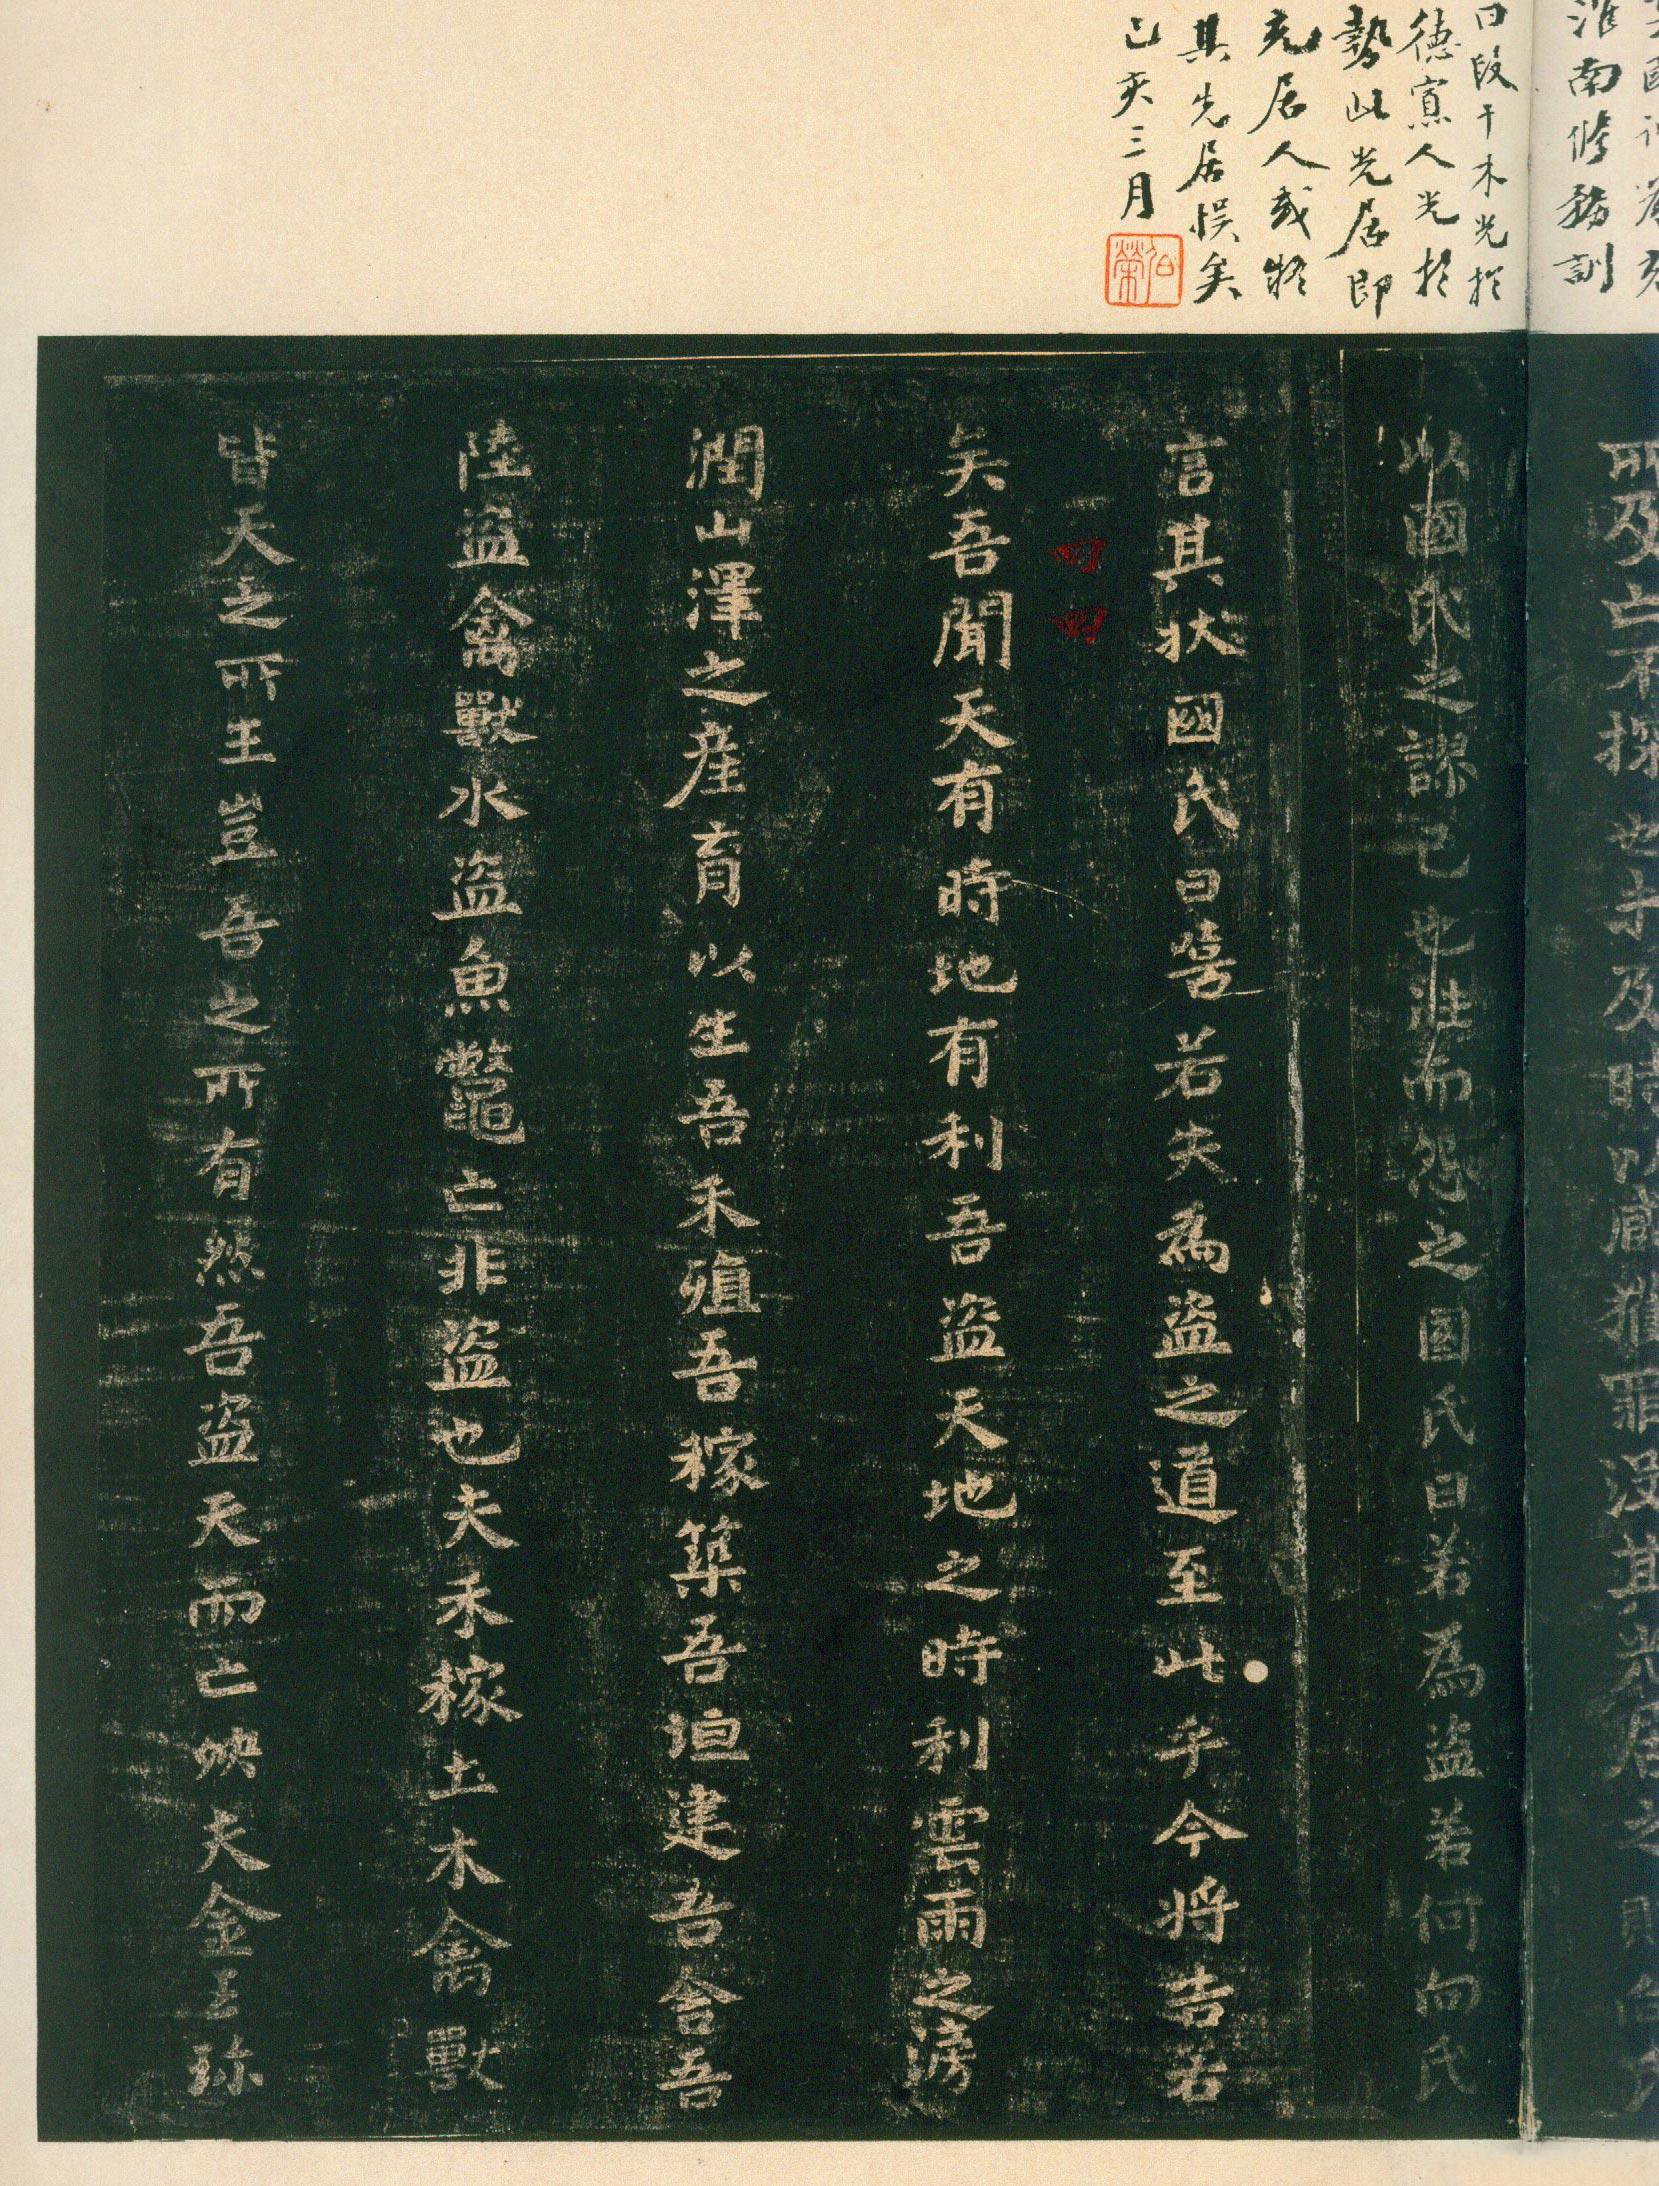 淮南脩務訓
曰段干木光於
德寡人光於
勢此光居即
光居人或將
其先居悮矣
己亥三月
所及亡不探也未及時以臧獲罪没其光居之財向氏
以國氏之謬己也往而怨之國氏曰若為盜若何向氏
言其狀國氏曰嘻若失為盜之道至此乎今將告若
矣吾聞天有時地有利吾盜天地之時利雲雨之滂
潤山澤之産育以生吾禾殖吾稼築吾垣建吾舍吾
陸盜禽獸水盜魚鼈亡非盜也夫禾稼土木禽獸
皆天之所生豈吾之所有然吾盜天而亡殃夫金玉珎